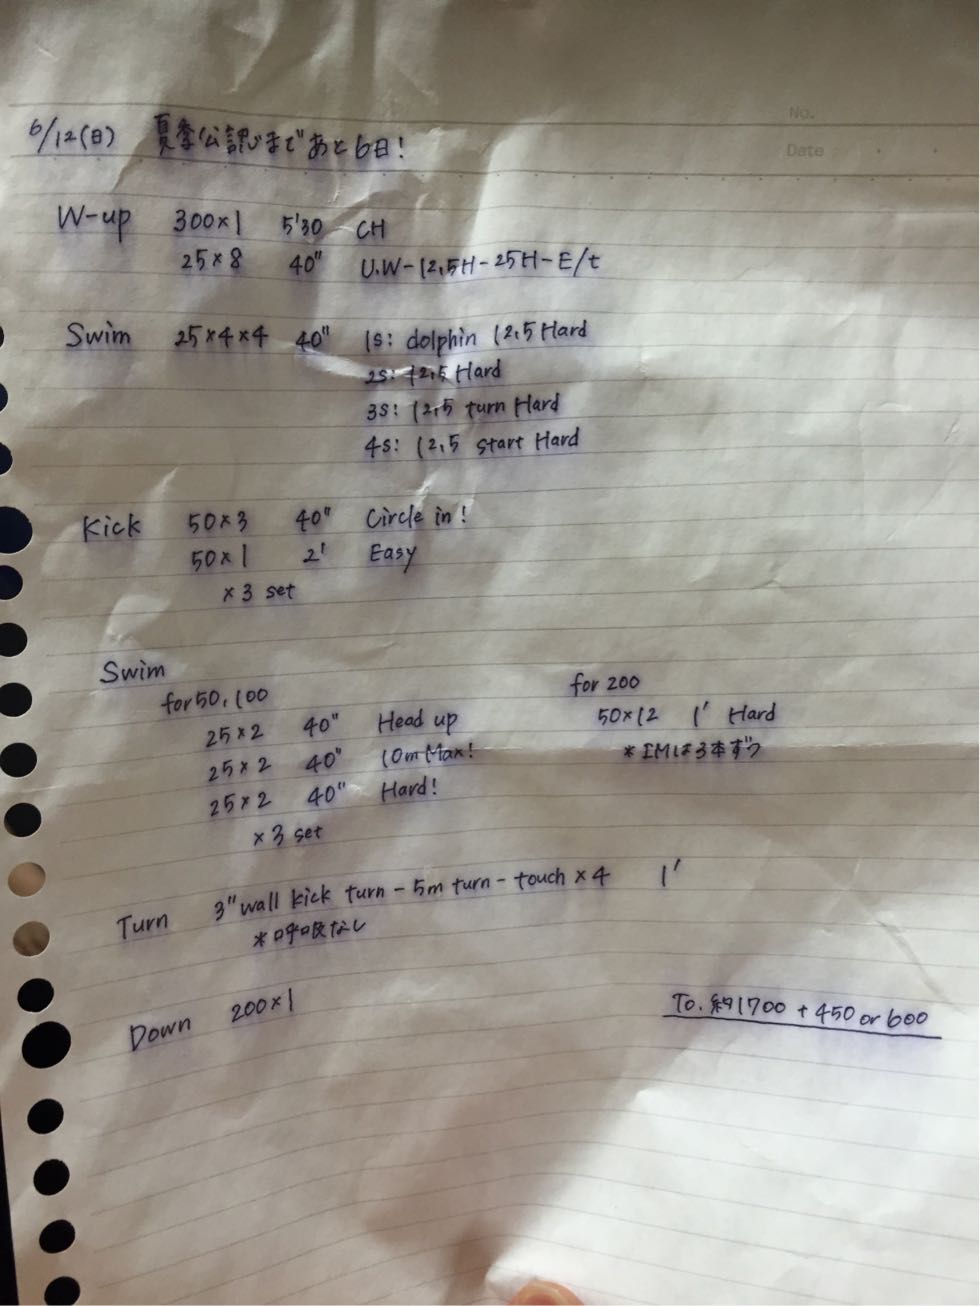 No.
Date
6/12(日) 夏季公認まであと6日!
W-up 300×1 5'30 CH
25×8 40" U.W-12,5H-25H-E/t
Swim 25×4×4 40" 1s: dolphin 12,5 Hard
2s: 12,5 Hard
3s: 12,5 turn Hard
4s: 12,5 start Hard
Kick 50×3 40" Circle in!
50×1 2' Easy
×3 set
Swim
for 50,100
25×2 40" Head up
25×2 40" 10m Max!
25×2 40" Hard!
×3 set
for 200
50×12 1' Hard
*IMは3本ずつ
Turn 3"wall kick turn-5m turn-touch×4 1'
*呼吸なし
Down 200×1
To. 約1700+450 or 600